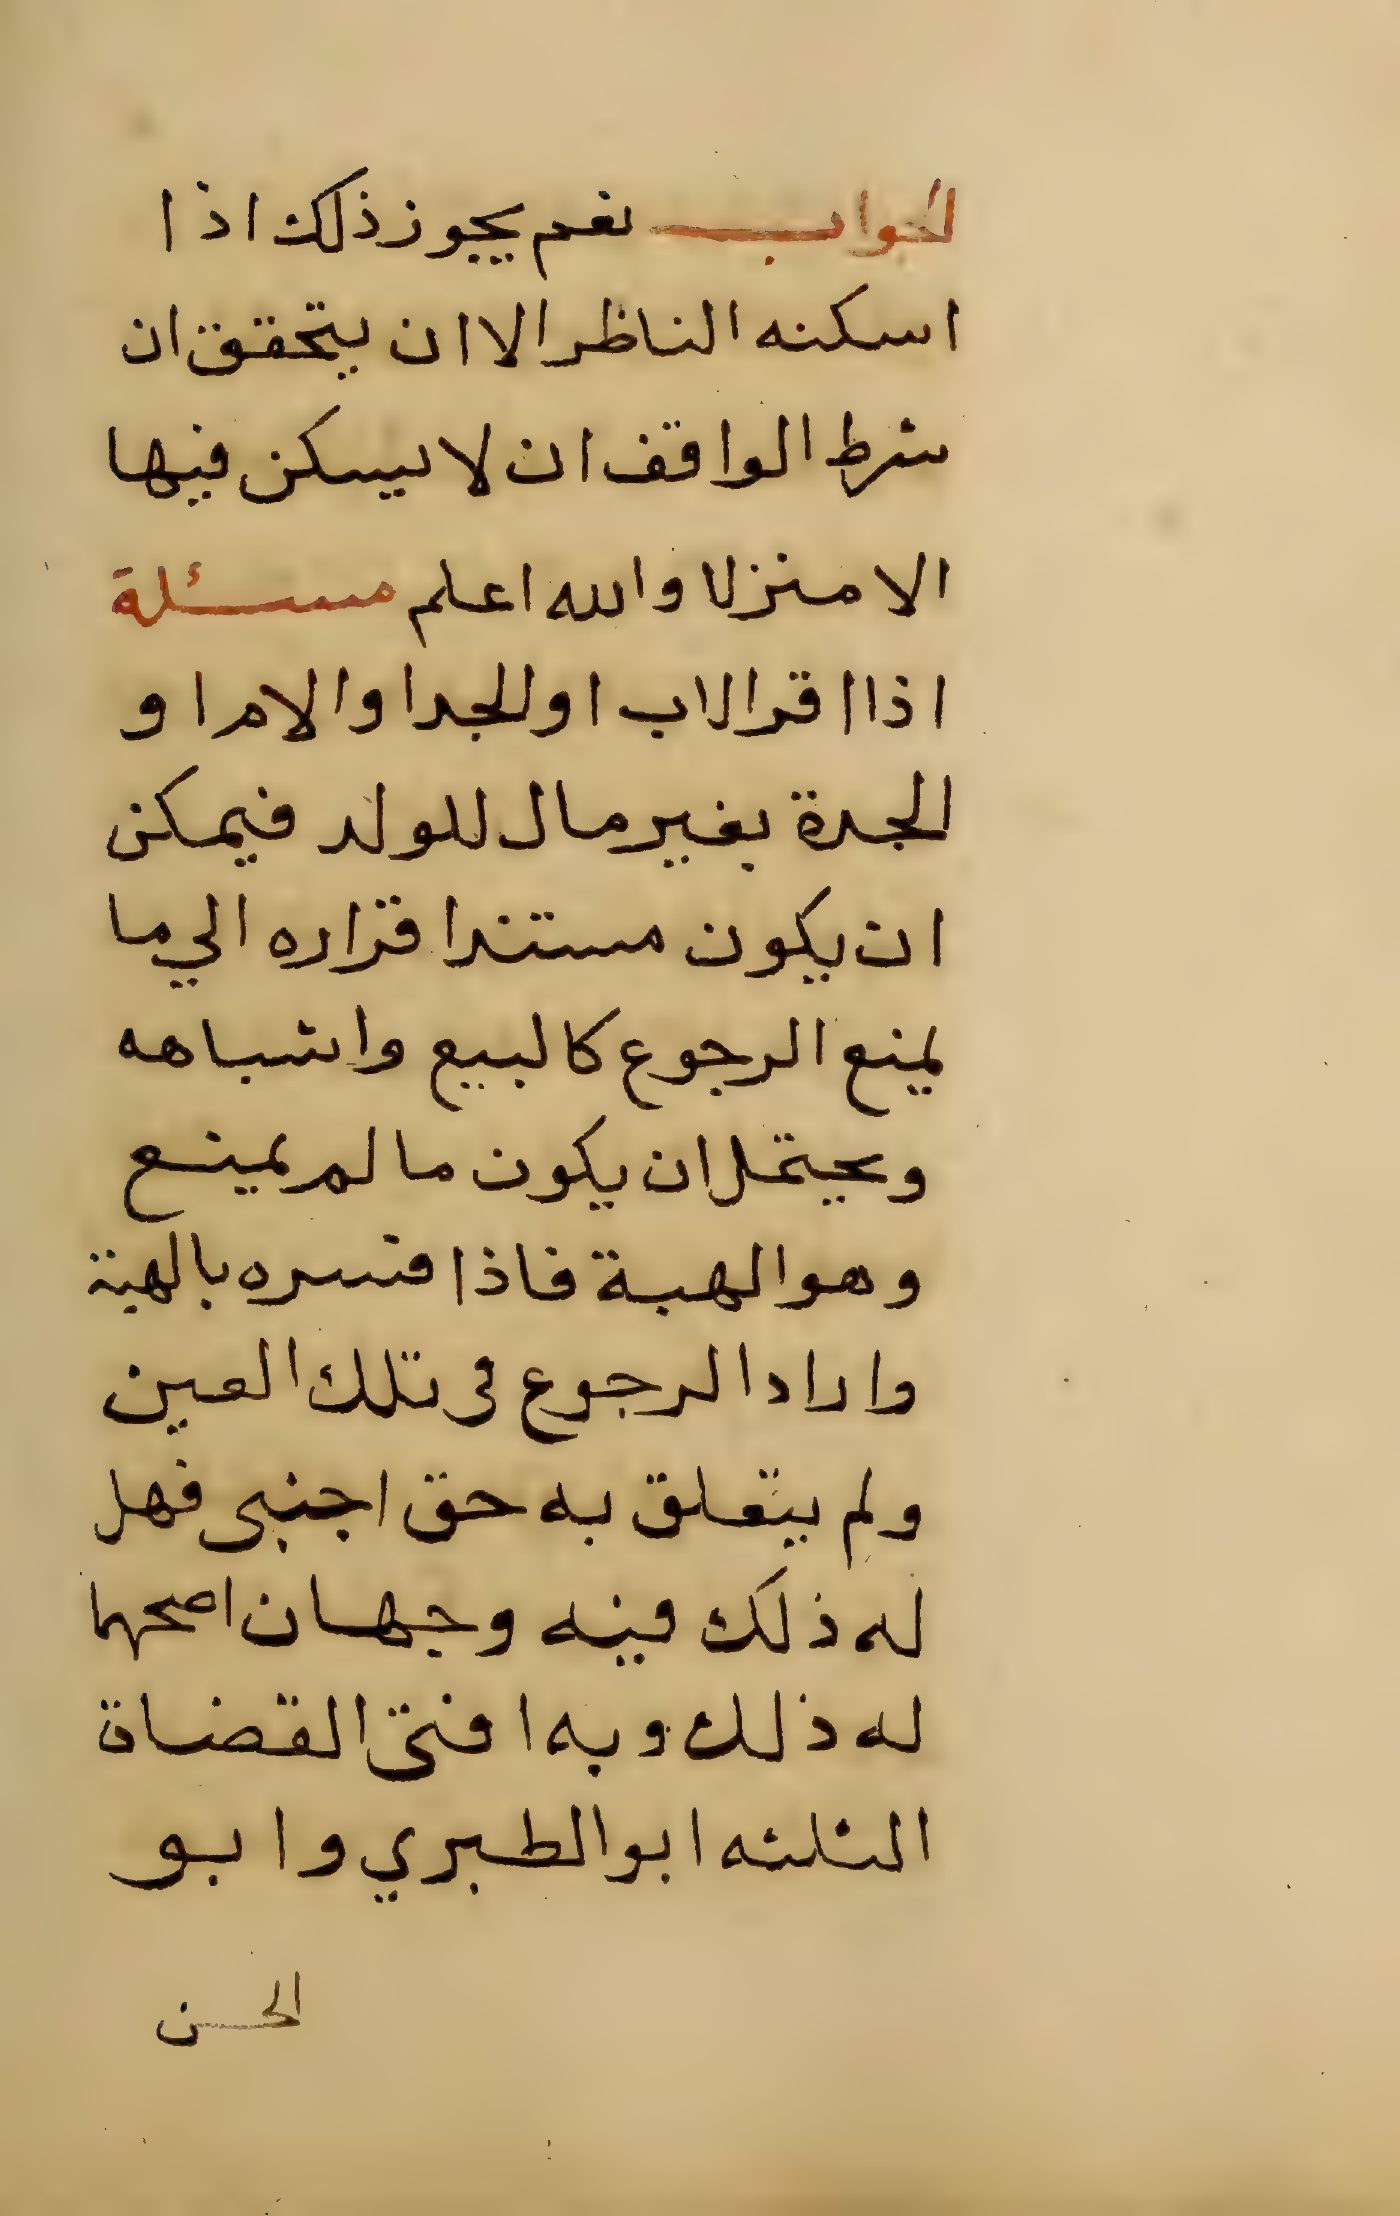 الجواب نعم يجوز ذلك اذا
اسكنه الناظر الا ان يتحقق ان
شرط الواقف ان لا يسكن فيها
الا منزلا والله اعلم مسئلة
اذا اقر الاب او الجد او الام او
الجدة بغير مال للولد فيمكن
ان يكون مستند اقراره الي ما
يمنع الرجوع كالبيع واشباهه
ويحتمل ان يكون ما لم يمنع
وهو الهبة فاذا فسره بالهبة
واراد الرجوع في تلك العين
ولم يتعلق به حق اجنبى فهل
له ذلك فيه وجهان اصحهما
له ذلك وبه افتى القضاة
الثلثه ابو الطبري وابو
الحسن